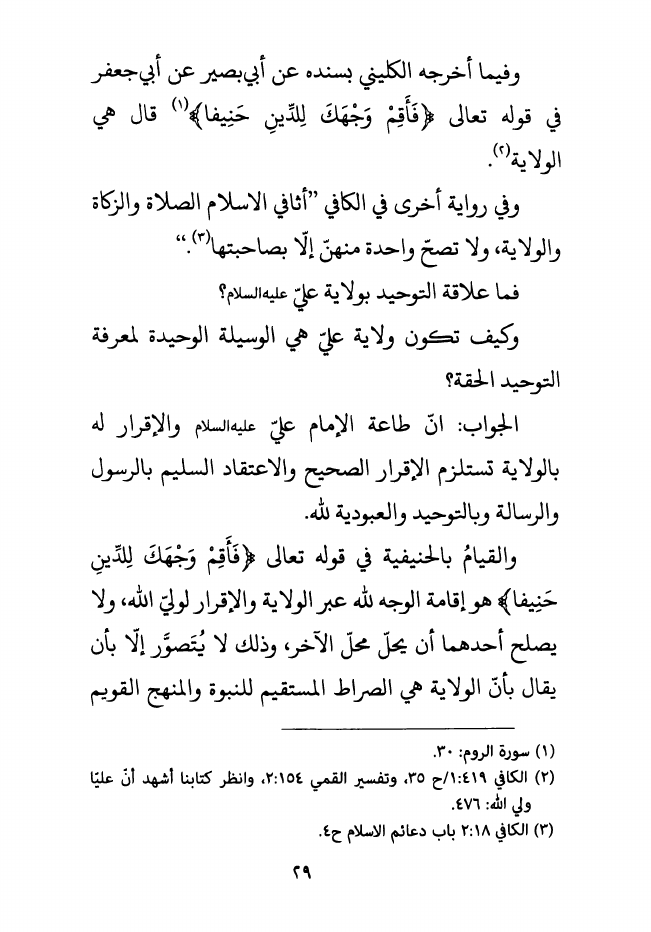 وفيما أخرجه الكليني بسنده عن أبي‌بصير عن أبي‌جعفر
في قوله تعالى ﴿فَأَقِمْ وَجْهَكَ لِلدِّينِ حَنِيفا﴾(١) قال هي
الولاية(٢).
وفي رواية أخرى في الكافي ”أثافي الاسلام الصلاة والزكاة
والولاية، ولا تصحّ واحدة منهنّ إلّا بصاحبتها(٣).“
فما علاقة التوحيد بولاية عليّ عليه‌السلام؟
وكيف تكون ولاية عليّ هي الوسيلة الوحيدة لمعرفة
التوحيد الحقة؟
الجواب: انّ طاعة الإمام عليّ عليه‌السلام والإقرار له
بالولاية تستلزم الإقرار الصحيح والاعتقاد السليم بالرسول
والرسالة وبالتوحيد والعبودية لله.
والقيامُ بالحنيفية في قوله تعالى ﴿فَأَقِمْ وَجْهَكَ لِلدِّينِ
حَنِيفا﴾ هو إقامة الوجه لله عبر الولاية والإقرار لوليّ الله، ولا
يصلح أحدهما أن يحلّ محلّ الآخر، وذلك لا يُتَصوَّر إلّا بأن
يقال بأنّ الولاية هي الصراط المستقيم للنبوة والمنهج القويم
(١) سورة الروم: ٣٠.
(٢) الكافي ١:٤١٩/ح ٣٥، وتفسير القمي ٢:١٥٤، وانظر كتابنا أشهد أنّ عليّا
ولي الله: ٤٧٦.
(٣) الكافي ٢:١٨ باب دعائم الاسلام ح٤.
٢٩